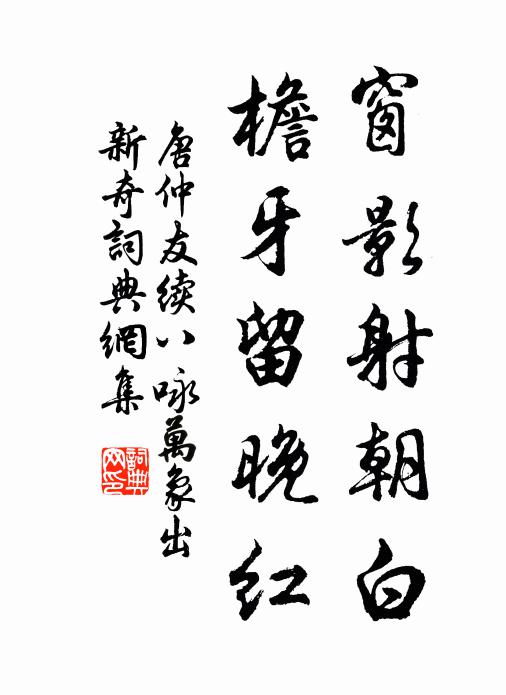 窗影射朝白
檐牙留晚红
唐仲友续八咏萬象出
新奇詞典網集
詞典网印